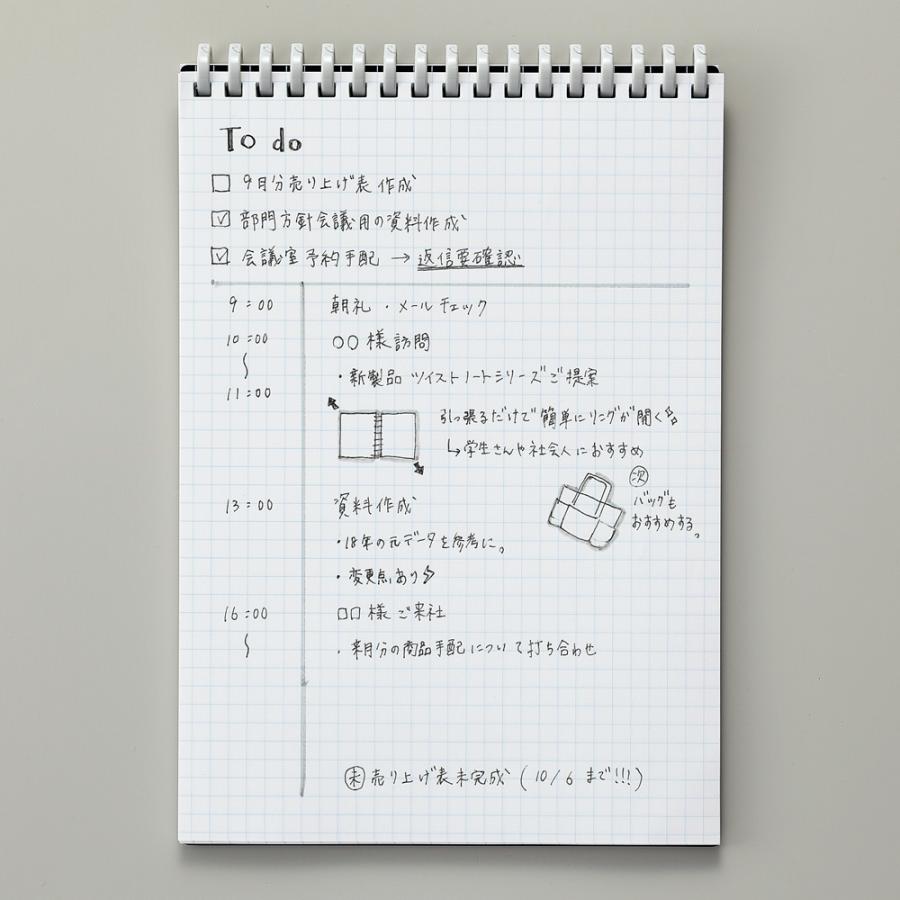 To do
□ 9月分売り上げ表 作成
☑ 部門方針会議用の資料作成
☑ 会議室予約手配 → 返信要確認
9:00 朝礼 ・メールチェック
10:00 ○○様訪問
〜 ・新製品 ツイストノートシリーズご提案
11:00
引っ張るだけで簡単にリングが開く
↳学生さんや社会人におすすめ
次
バッグも
おすすめする。
13:00 資料作成
・18年の元データを参考に。
・変更点あり
16:00 □□様ご来社
〜 ・来月分の商品手配について打ち合わせ
未 売り上げ表未完成 (10/6 まで!!!)